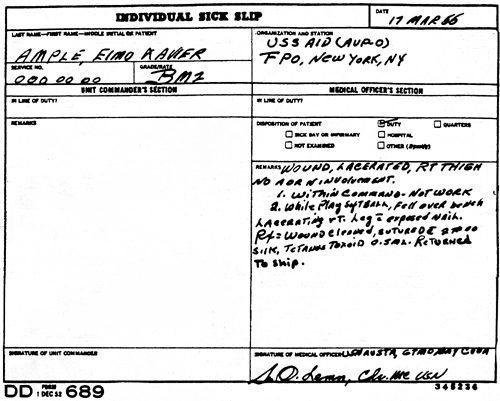 INDIVIDUAL SICK SLIP
DATE
17 MAR 66
LAST NAME—FIRST NAME—MIDDLE INITIAL OF PATIENT
AMPLE, EIMO XAVIER
ORGANIZATION AND STATION
USS AID (AUP-O)
FPO, NEW YORK, NY
SERVICE NO.
000 00 00
GRADE/RATE
BM2
UNIT COMMANDER'S SECTION
MEDICAL OFFICER'S SECTION
IN LINE OF DUTY?
IN LINE OF DUTY?
REMARKS
DISPOSITION OF PATIENT
DUTY
QUARTERS
SICK BAY OR INFIRMARY
HOSPITAL
NOT EXAMINED
OTHER (Specify)
REMARKS WOUND, LACERATED, RT THIGH
NO A OR N INVOLVEMENT.
1. WITHIN COMMAND - NOT WORK
2. While Play SoftBALL, Fell over bench
LACERATING RT. Leg c exposed Nail.
Rx = WOUND Cleaned, SUTURED c 00
SILK, TETANUS TOXOID 0.5 ML. RETURNED
To Ship.
SIGNATURE OF UNIT COMMANDER
SIGNATURE OF MEDICAL OFFICER USNAVSTA, GTMO BAY CUBA
MC USN
DD FORM 1 DEC 52 689
345236